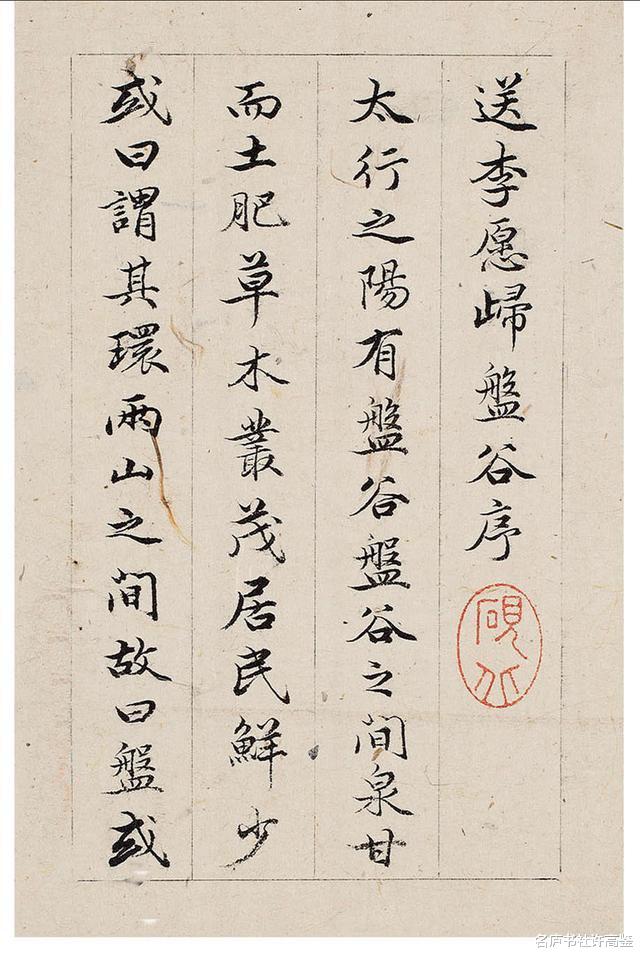 送李愿歸盤谷序
硯北
太行之陽有盤谷盤谷之間泉甘
而土肥草木叢茂居民鮮少
或曰謂其環兩山之間故曰盤或
名庐书社许高鉴